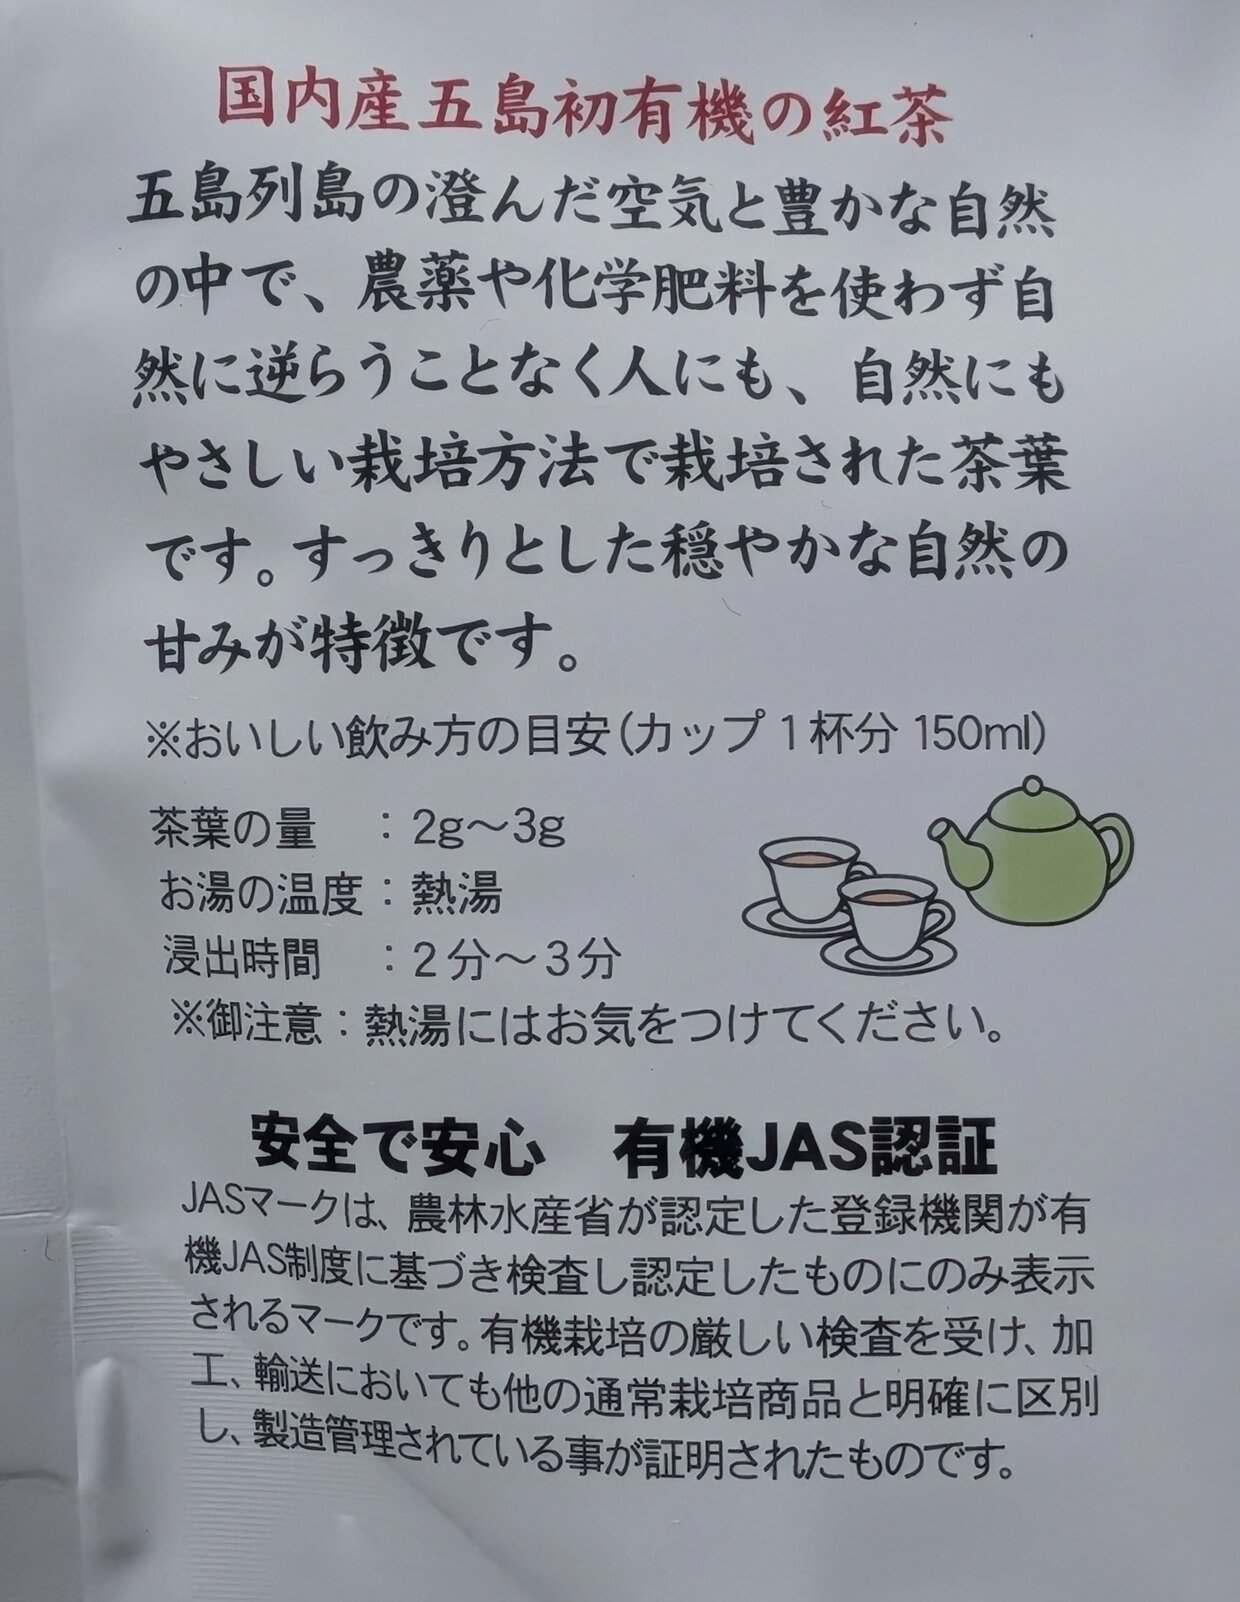 国内産五島初有機の紅茶
五島列島の澄んだ空気と豊かな自然
の中で、農薬や化学肥料を使わず自
然に逆らうことなく人にも、自然にも
やさしい栽培方法で栽培された茶葉
です。すっきりとした穏やかな自然の
甘みが特徴です。
※おいしい飲み方の目安(カップ1杯分 150ml)
茶葉の量　:2g〜3g
お湯の温度:熱湯
浸出時間　:2分〜3分
※御注意:熱湯にはお気をつけてください。
安全で安心　有機JAS認証
JASマークは、農林水産省が認定した登録機関が有
機JAS制度に基づき検査し認定したものにのみ表示
されるマークです。有機栽培の厳しい検査を受け、加
工、輸送においても他の通常栽培商品と明確に区別
し、製造管理されている事が証明されたものです。